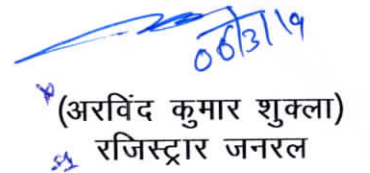 06/3/19
(अरविंद कुमार शुक्ला)
रजिस्ट्रार जनरल